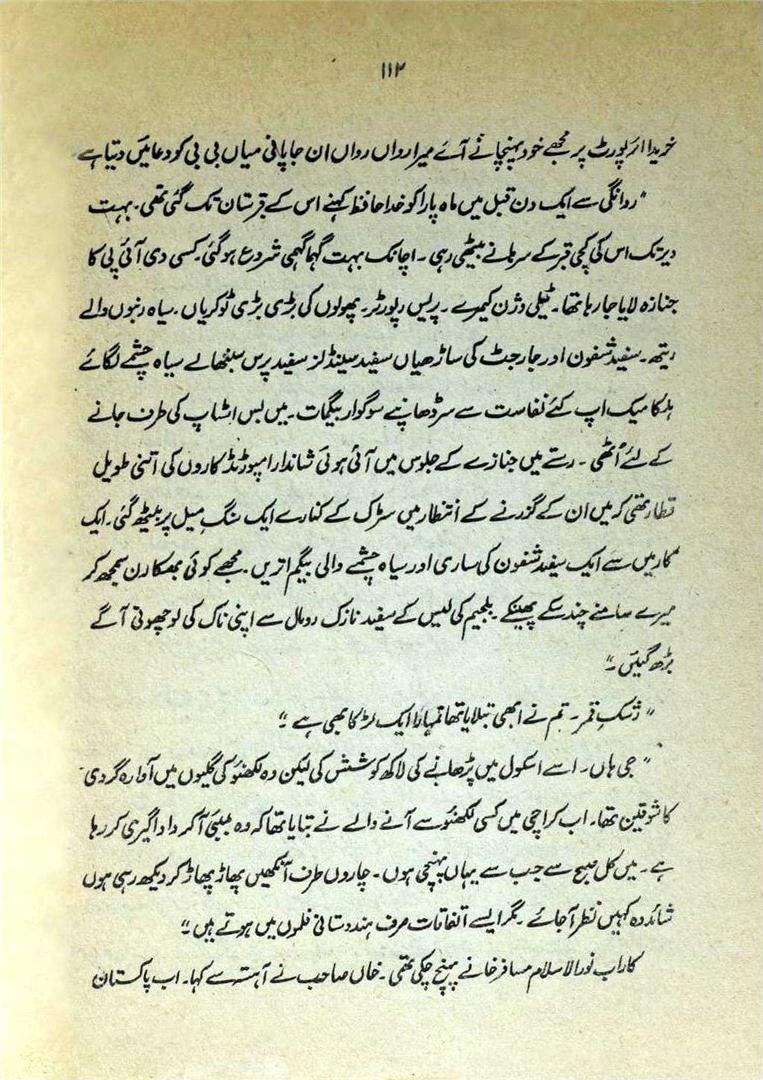 ۱۱۲
خریدا ائرپورٹ پر مجھے خود پہنچانے آئے میرا رواں رواں ان جاپانی میاں بی بی کو دعائیں دیتا ہے
"روانگی سے ایک دن قبل میں ماہ پارا کو خدا حافظ کہنے اس کے قبرستان تک گئی تھی۔ بہت
دیر تک اس کی کچی قبر کے سرہانے بیٹھی رہی۔ اچانک بہت گہما گہمی شروع ہو گئی۔ کسی وی آئی پی کا
جنازہ لایا جا رہا تھا۔ ٹیلی وژن کیمرے۔ پریس رپورٹر۔ پھولوں کی بڑی بڑی ٹوکریاں۔ سیاہ ربنوں والے
ریتھ۔ سفید شفون اور جارجٹ کی ساڑھیاں سفید سینڈلز سفید پرس سنبھالے سیاہ چشمے لگائے
ہلکا میک اپ کئے نفاست سے سر ڈھانپے سوگوار بیگمات۔ میں بس اسٹاپ کی طرف جانے
کے لئے اُٹھی۔ رستے میں جنازے کے جلوس میں آئی ہوئی شاندار امپورٹڈ کاروں کی اتنی طویل
قطار تھی کہ میں ان کے گزرنے کے انتظار میں سڑک کے کنارے ایک سنگِ میل پر بیٹھ گئی۔ ایک
کار میں سے ایک سفید شفون کی ساری اور سیاہ چشمے والی بیگم اتریں۔ مجھے کوئی بھکارن سمجھ کر
میرے سامنے چند سکے پھینکے۔ بلجیم کی لیس کے سفید نازک رومال سے اپنی ناک کی لو چھوتی آگے
بڑھ گئیں۔"
"رشکِ قمر۔ تم نے ابھی بتلایا تھا تمہارا ایک لڑکا بھی ہے۔"
"جی ہاں۔ اسے اسکول میں پڑھانے کی لاکھ کوشش کی لیکن وہ لکھنؤ کی گلیوں میں آوارہ گردی
کا شوقین تھا۔ اب کراچی میں کسی لکھنؤ سے آنے والے نے بتایا تھا کہ وہ بمبئی آ کر داداگیری کر رہا
ہے۔ میں کل صبح سے جب سے یہاں پہنچی ہوں۔ چاروں طرف آنکھیں پھاڑ پھاڑ کر دیکھ رہی ہوں
شائد وہ کہیں نظر آ جائے۔ مگر ایسے اتفاقات صرف ہندوستانی فلموں میں ہوتے ہیں۔"
کار اب نورالاسلام مسافر خانے پہنچ چکی تھی۔ خاں صاحب نے آہستہ سے کہا۔ اب پاکستان